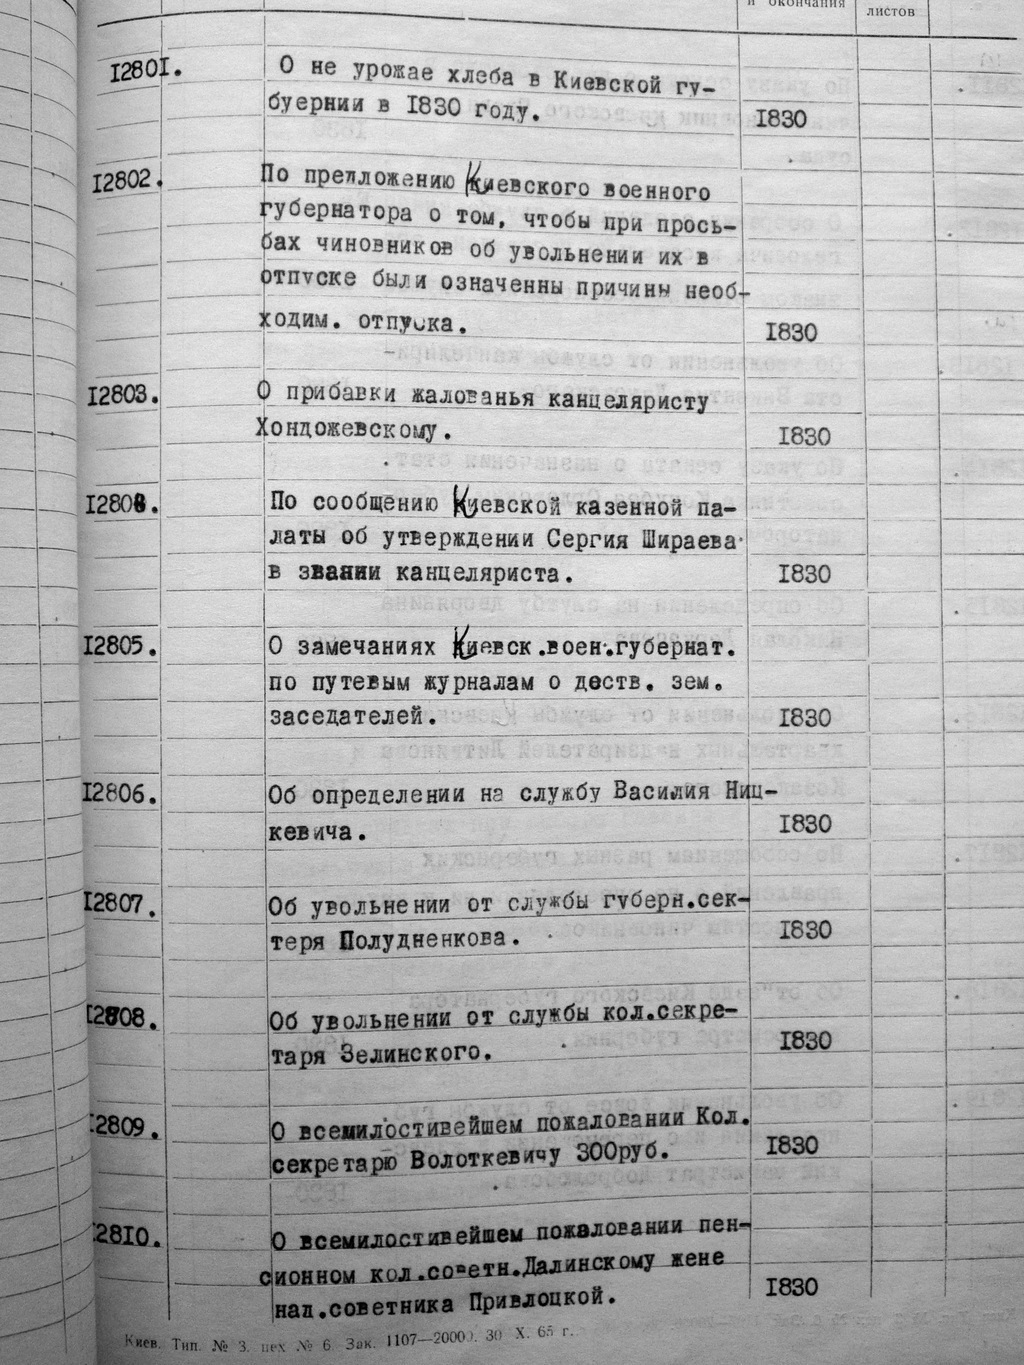 и окончания
листов
12801.
О не урожае хлеба в Киевской гу-
буернии в 1830 году.
1830
12802.
По препложению Киевского военного
губернатора о том, чтобы при прось-
бах чиновников об увольнении их в
отпуске были означенны причины необ-
ходим. отпуска.
1830
12803.
О прибавки жалованья канцеляристу
Хондожевскому.
1830
По сообщению Киевской казенной па-
латы об утверждении Сергия Шираева
в звании канцеляриста.
1830
12805.
О замечаниях Киевск.воен.губернат.
по путевым журналам о деств. зем.
заседателей.
1830
12806.
Об определении на службу Василия Ниц-
кевича.
1830
12807.
Об увольнении от службы губерн.сек-
теря Полудненкова.
1830
12808.
Об увольнении от службы кол.секре-
таря Зелинского.
1830
12809.
О всемилостивейшем пожаловании Кол.
секретарю Волоткевичу 300руб.
1830
12810.
О всемилостивейшем пожаловании пен-
сионном кол.советн.Далинскому жене
над.советника Привлоцкой.
1830
Киев. Тип. № 3. цех № 6 Зак. 1107—20000. 30 X. 65 г.